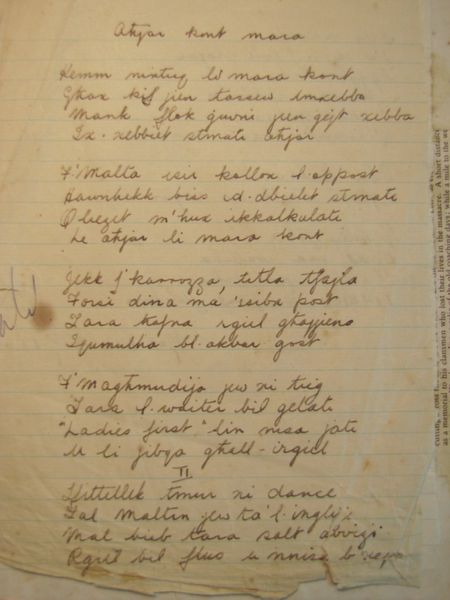 Aħjar kont mara
Kemm nixtieq li mara kont
Għax kif jien tassew imxebba
Mank flok ġuvni jien ġejt xebba
Ix-xebbiet stmati aħjar
F'Malta isir kollox l-oppost
Hawnhekk biss id-dbielet stmati
Qliezet m'hux ikkalkulati
Le aħjar li mara kont
Jekk f'karrozza, titla tfajla
Forsi dina ma 'ssibx post
Tara ħafna rġiel għajjiena
Iqumulha bl-akbar gost
F'Magħmudija jew xi tieġ
Tara l-waiter bil-ġelati
"Ladies first" lin nisa jati
U li jibqa għall-irġiel
II
Jiftillek tmur xi dance
Tal Maltin jew ta' l-Ingliżi
Mal bieb tara salt avviżi
Rġiel bil flus u nnisa b'xejn
as a memorial to his clansmen who lost their lives in the massacre. A short distance
coaching days; while a mile to the we